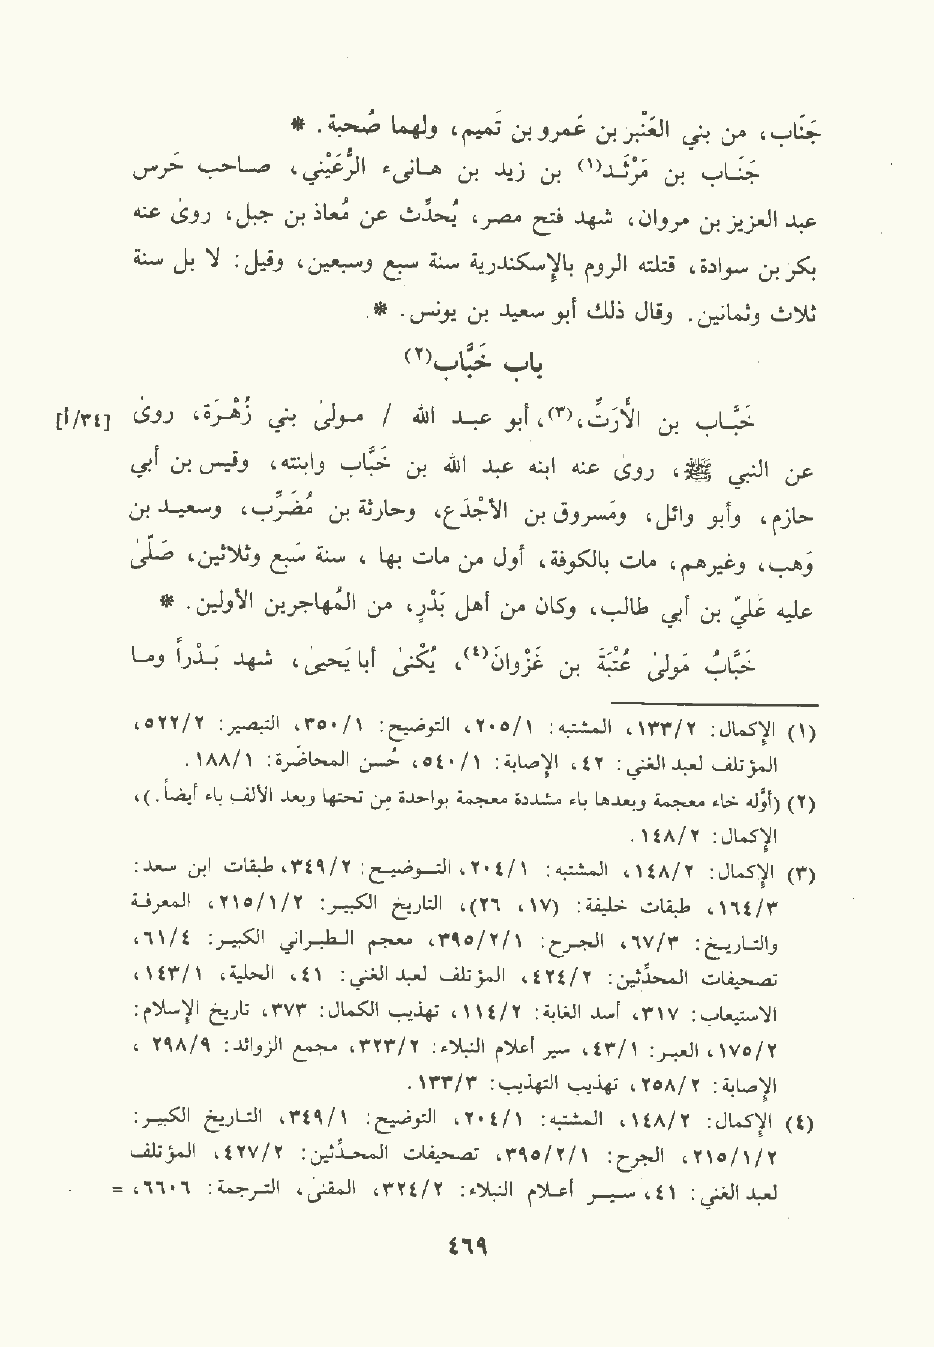 جَنَاب، من بني العَنْبر بن عَمرو بن تَميم، ولهما صُحبة. *
جَنَاب بن مَرْثَد(١) بن زيد بن هانىء الرُّعَيْني، صاحب حَرس
عبد العزيز بن مروان، شهد فتح مصر، يُحدِّث عن مُعاذ بن جبل، رَوىٰ عنه
بكر بن سوادة، قتلته الروم بالإسكندرية سنة سبع وسبعين، وقيل: لا بل سنة
ثلاث وثمانين. وقال ذلك أبو سعيد بن يونس. *
باب خَبَّاب(٢)
خَبَّاب بن الأَرَتّ،(٣)، أبو عبد الله / مولىٰ بني زُهْرَة، روىٰ [٣٤/أ]
عن النبي ﷺ، روىٰ عنه ابنه عبد الله بن خَبَّاب وابنته، وقيس بن أبي
حازم، وأبو وائل، ومَسروق بن الأجْدَع، وحارثة بن مُضَرِّب، وسعيد بن
وَهب، وغيرهم، مات بالكوفة، أول من مات بها ، سنة سَبع وثلاثين، صَلَّىٰ
عليه عَليّ بن أبي طالب، وكان من أهل بَدْر، من المُهاجرين الأولين. *
خَبَّابُ مَولىٰ عُتْبَة بن غَزْوان(٤)، يُكْنىٰ أبا يَحيىٰ، شهد بَدْراً وما
(١) الإكمال: ١٣٣/٢، المشتبه: ٢٠٥/١، التوضيح: ٣٥٠/١، التبصير: ٥٢٢/٢،
المؤتلف لعبد الغني: ٤٢، الإصابة: ٥٤٠/١، حُسن المحاضرة: ١٨٨/١.
(٢) (أوّله خاء معجمة وبعدها باء مشددة معجمة بواحدة من تحتها وبعد الألف باء أيضاً.)،
الإكمال: ١٤٨/٢.
(٣) الإكمال: ١٤٨/٢، المشتبه: ٢٠٤/١، التوضيح: ٣٤٩/٢، طبقات ابن سعد:
١٦٤/٣، طبقات خليفة: (١٧، ٢٦)، التاريخ الكبير: ٢١٥/١/٢، المعرفة
والتاريخ: ٦٧/٣، الجرح: ٣٩٥/٢/١، معجم الطبراني الكبير: ٦١/٤،
تصحيفات المحدّثين: ٤٢٤/٢، المؤتلف لعبد الغني: ٤١، الحلية، ١٤٣/١،
الاستيعاب: ٣١٧، أسد الغابة: ١١٤/٢، تهذيب الكمال: ٣٧٣، تاريخ الإسلام:
١٧٥/٢، العبر: ٤٣/١، سير أعلام النبلاء: ٣٢٣/٢، مجمع الزوائد: ٢٩٨/٩ ،
الإصابة: ٢٥٨/٢، تهذيب التهذيب: ١٣٣/٣.
(٤) الإكمال: ١٤٨/٢، المشتبه: ٢٠٤/١، التوضيح: ٣٤٩/١، التاريخ الكبير:
٢١٥/١/٢، الجرح: ٣٩٥/٢/١، تصحيفات المحدّثين: ٤٢٧/٢، المؤتلف
لعبد الغني: ٤١، سير أعلام النبلاء: ٣٢٤/٢، المقنىٰ، الترجمة: ٦٦٠٦، =
٤٦٩